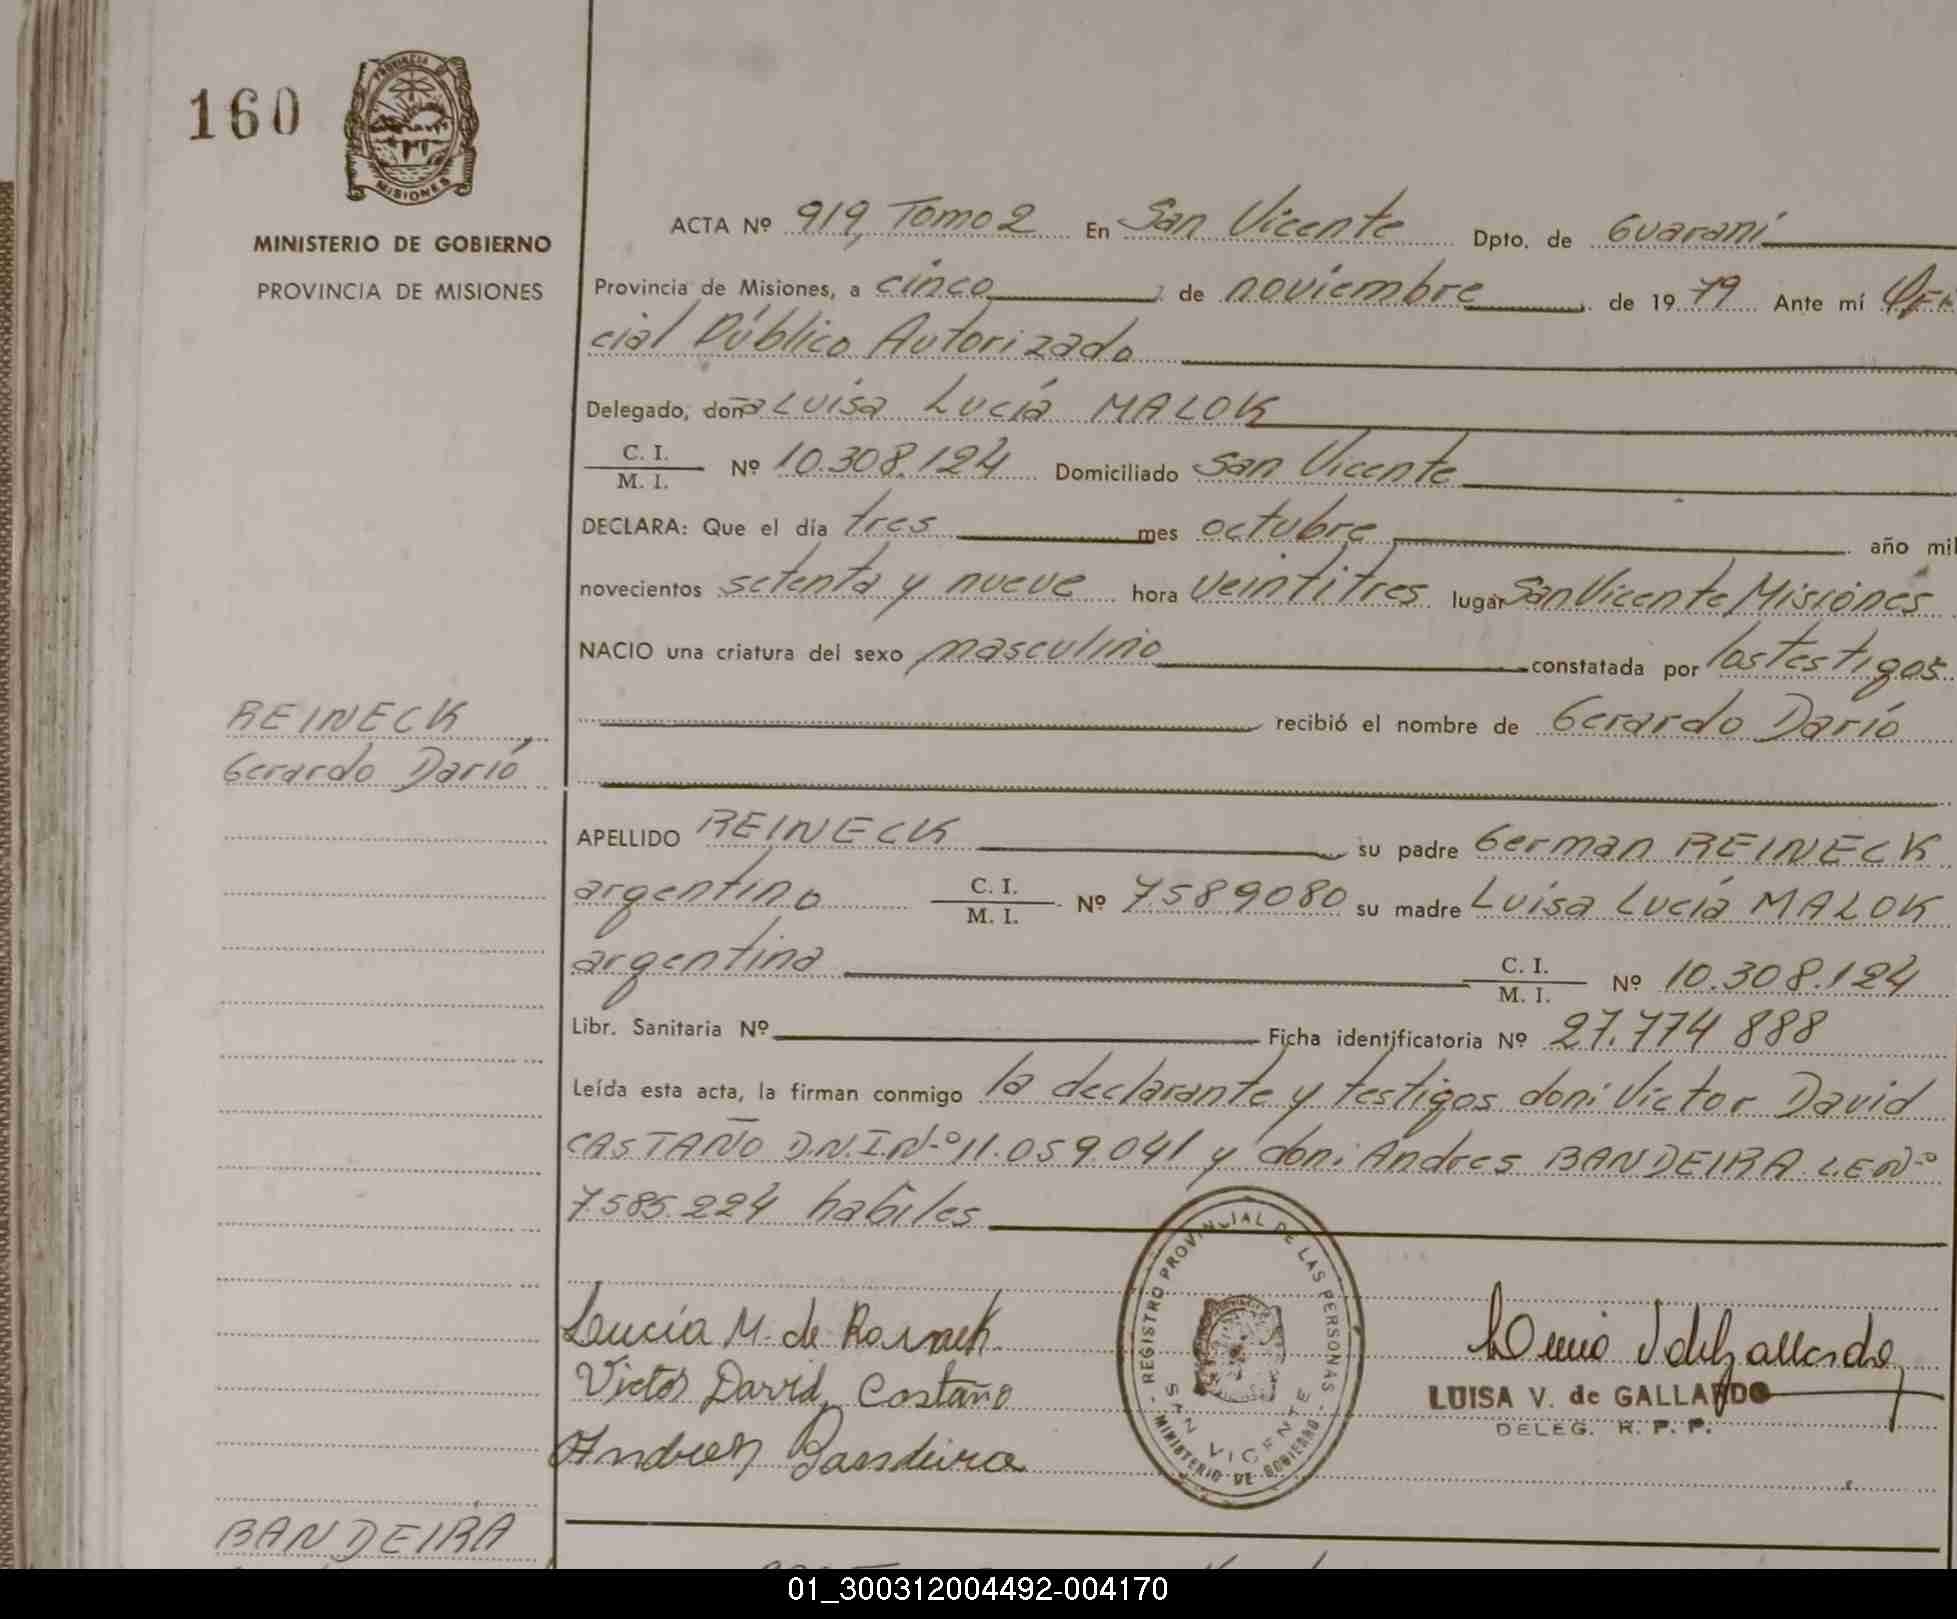 160
PROVINCIA DE
MISIONES
MINISTERIO DE GOBIERNO
PROVINCIA DE MISIONES
ACTA Nº 919, Tomo 2 En San Vicente Dpto. de Guaraní
Provincia de Misiones, a cinco de noviembre de 1979 Ante mí Ofi
cial Público Autorizado
Delegado, doña Luisa Lucía MALOK
C. I.
M. I. Nº 10.308.124 Domiciliado San Vicente
DECLARA: Que el día tres mes octubre año mil
novecientos setenta y nueve hora veintitres lugar San Vicente, Misiones
NACIO una criatura del sexo masculino constatada por los testigos
recibió el nombre de Gerardo Darío
REINECK,
Gerardo Darío
APELLIDO REINECK su padre German REINECK
argentino C. I.
M. I. Nº 7589080 su madre Luisa Lucía MALOK
argentina C. I.
M. I. Nº 10.308.124
Libr. Sanitaria Nº Ficha identificatoria Nº 27.774 888
Leída esta acta, la firman conmigo la declarante y testigos don: Victor David
CASTAÑO D.N.I.Nº 11.059.041 y don: Andres BANDEIRA L.E.Nº
7.585.224 habiles
Lucía M. de
Victor David Castaño
Andres Bandeira
REGISTRO PROVINCIAL DE LAS PERSONAS
SAN VICENTE
MINISTERIO DE GOBIERNO
LUISA V. de GALLARDO
DELEG. R. P. P.
BANDEIRA
01_300312004492-004170